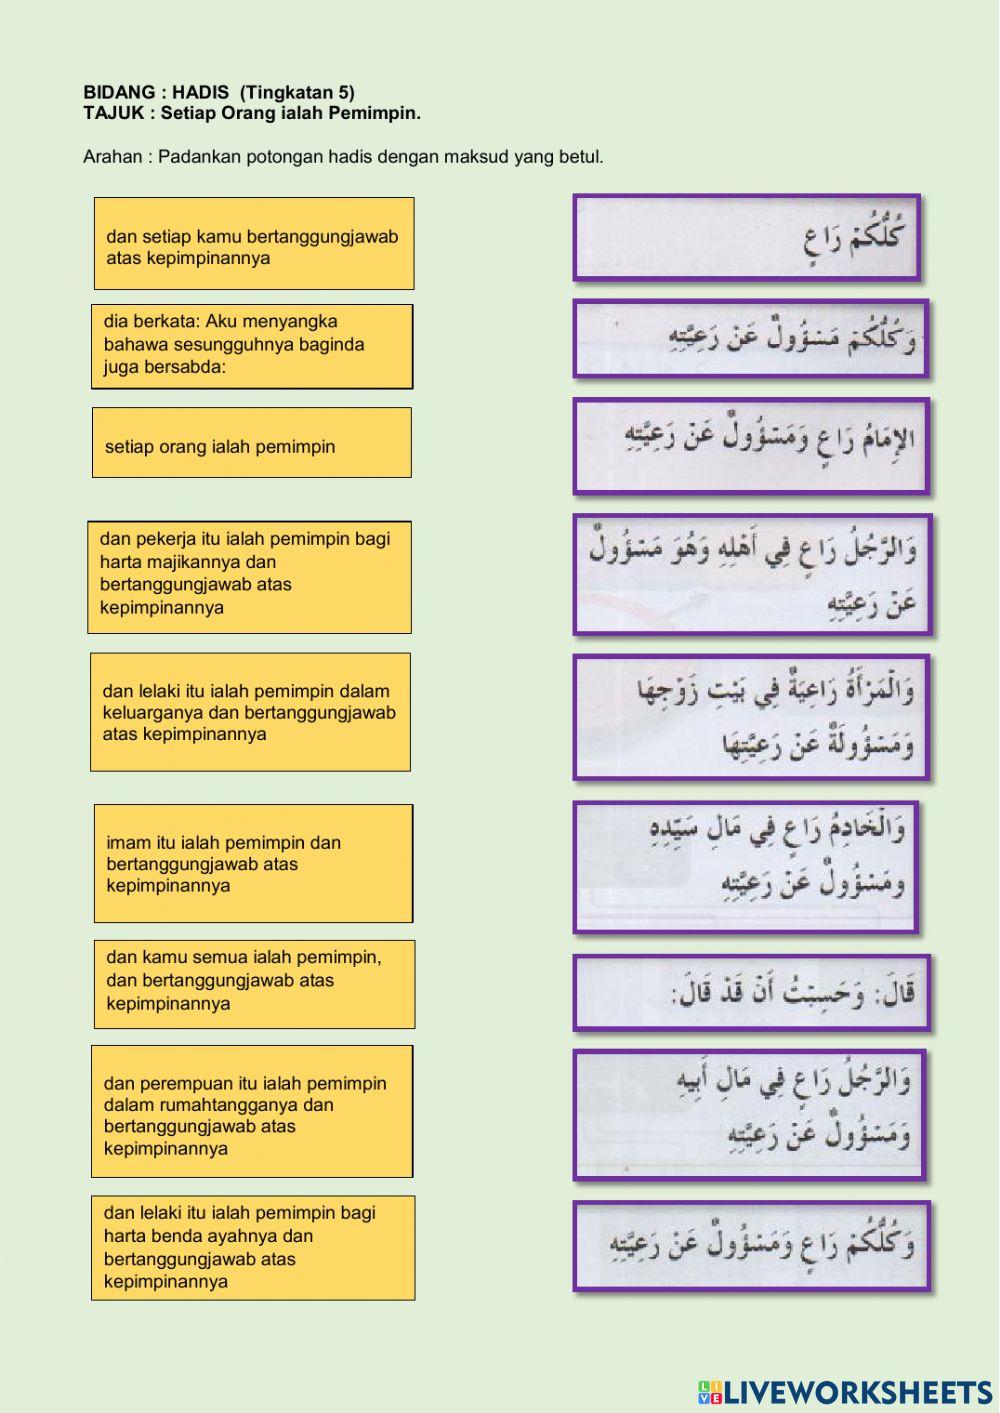 BIDANG : HADIS (Tingkatan 5)
TAJUK : Setiap Orang ialah Pemimpin.
Arahan : Padankan potongan hadis dengan maksud yang betul.
dan setiap kamu bertanggungjawab
atas kepimpinannya
كُلُّكُمْ رَاعٍ
dia berkata: Aku menyangka
bahawa sesungguhnya baginda
juga bersabda:
وَكُلُّكُمْ مَسْؤُولٌ عَنْ رَعِيَّتِهِ
setiap orang ialah pemimpin
الإِمَامُ رَاعٍ وَمَسْؤُولٌ عَنْ رَعِيَّتِهِ
dan pekerja itu ialah pemimpin bagi
harta majikannya dan
bertanggungjawab atas
kepimpinannya
وَالرَّجُلُ رَاعٍ فِي أَهْلِهِ وَهُوَ مَسْؤُولٌ
عَنْ رَعِيَّتِهِ
dan lelaki itu ialah pemimpin dalam
keluarganya dan bertanggungjawab
atas kepimpinannya
وَالْمَرْأَةُ رَاعِيَةٌ فِي بَيْتِ زَوْجِهَا
وَمَسْؤُولَةٌ عَنْ رَعِيَّتِهَا
imam itu ialah pemimpin dan
bertanggungjawab atas
kepimpinannya
وَالْخَادِمُ رَاعٍ فِي مَالِ سَيِّدِهِ
ومَسْؤُولٌ عَنْ رَعِيَّتِهِ
dan kamu semua ialah pemimpin,
dan bertanggungjawab atas
kepimpinannya
قَالَ: وَحَسِبْتُ أَنْ قَدْ قَالَ:
dan perempuan itu ialah pemimpin
dalam rumahtangganya dan
bertanggungjawab atas
kepimpinannya
وَالرَّجُلُ رَاعٍ فِي مَالِ أَبِيهِ
وَمَسْؤُولٌ عَنْ رَعِيَّتِهِ
dan lelaki itu ialah pemimpin bagi
harta benda ayahnya dan
bertanggungjawab atas
kepimpinannya
وَكُلُّكُمْ رَاعٍ وَمَسْؤُولٌ عَنْ رَعِيَّتِهِ
LIVE LIVEWORKSHEETS